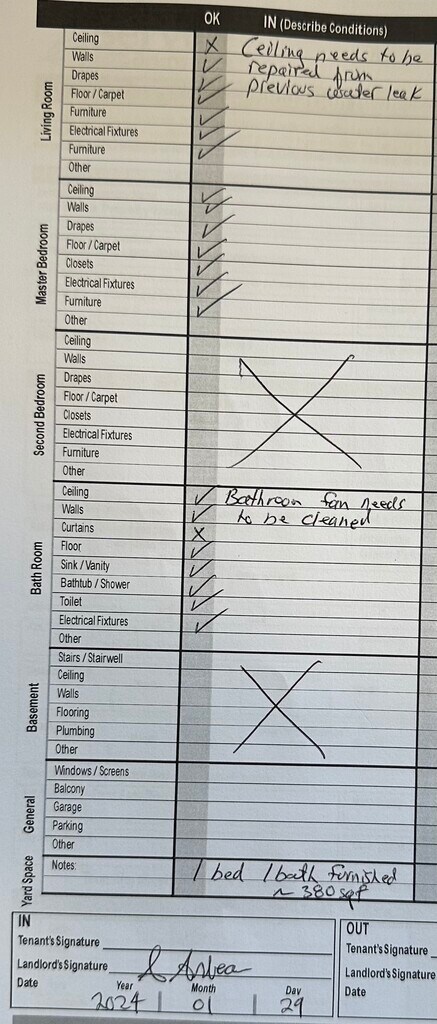 OK IN (Describe Conditions)
Living Room
Ceiling X Ceiling needs to be
Walls ✓ repaired from
Drapes ✓ previous water leak
Floor / Carpet ✓
Furniture ✓
Electrical Fixtures ✓
Furniture ✓
Other
Master Bedroom
Ceiling ✓
Walls ✓
Drapes ✓
Floor / Carpet ✓
Closets ✓
Electrical Fixtures ✓
Furniture ✓
Other
Second Bedroom
Ceiling
Walls
Drapes
Floor / Carpet
Closets
Electrical Fixtures
Furniture
Other
Bath Room
Ceiling ✓ Bathroom fan needs
Walls ✓ to be cleaned
Curtains X
Floor ✓
Sink / Vanity ✓
Bathtub / Shower ✓
Toilet ✓
Electrical Fixtures ✓
Other
Basement
Stairs / Stairwell
Ceiling
Walls
Flooring
Plumbing
Other
General
Windows / Screens
Balcony
Garage
Parking
Other
Yard Space
Notes: 1 bed 1 bath furnished
~ 380 sqf
IN
Tenant's Signature
Landlord's Signature
Date Year Month Day
2024 01 29
OUT
Tenant's Signature
Landlord's Signature
Date